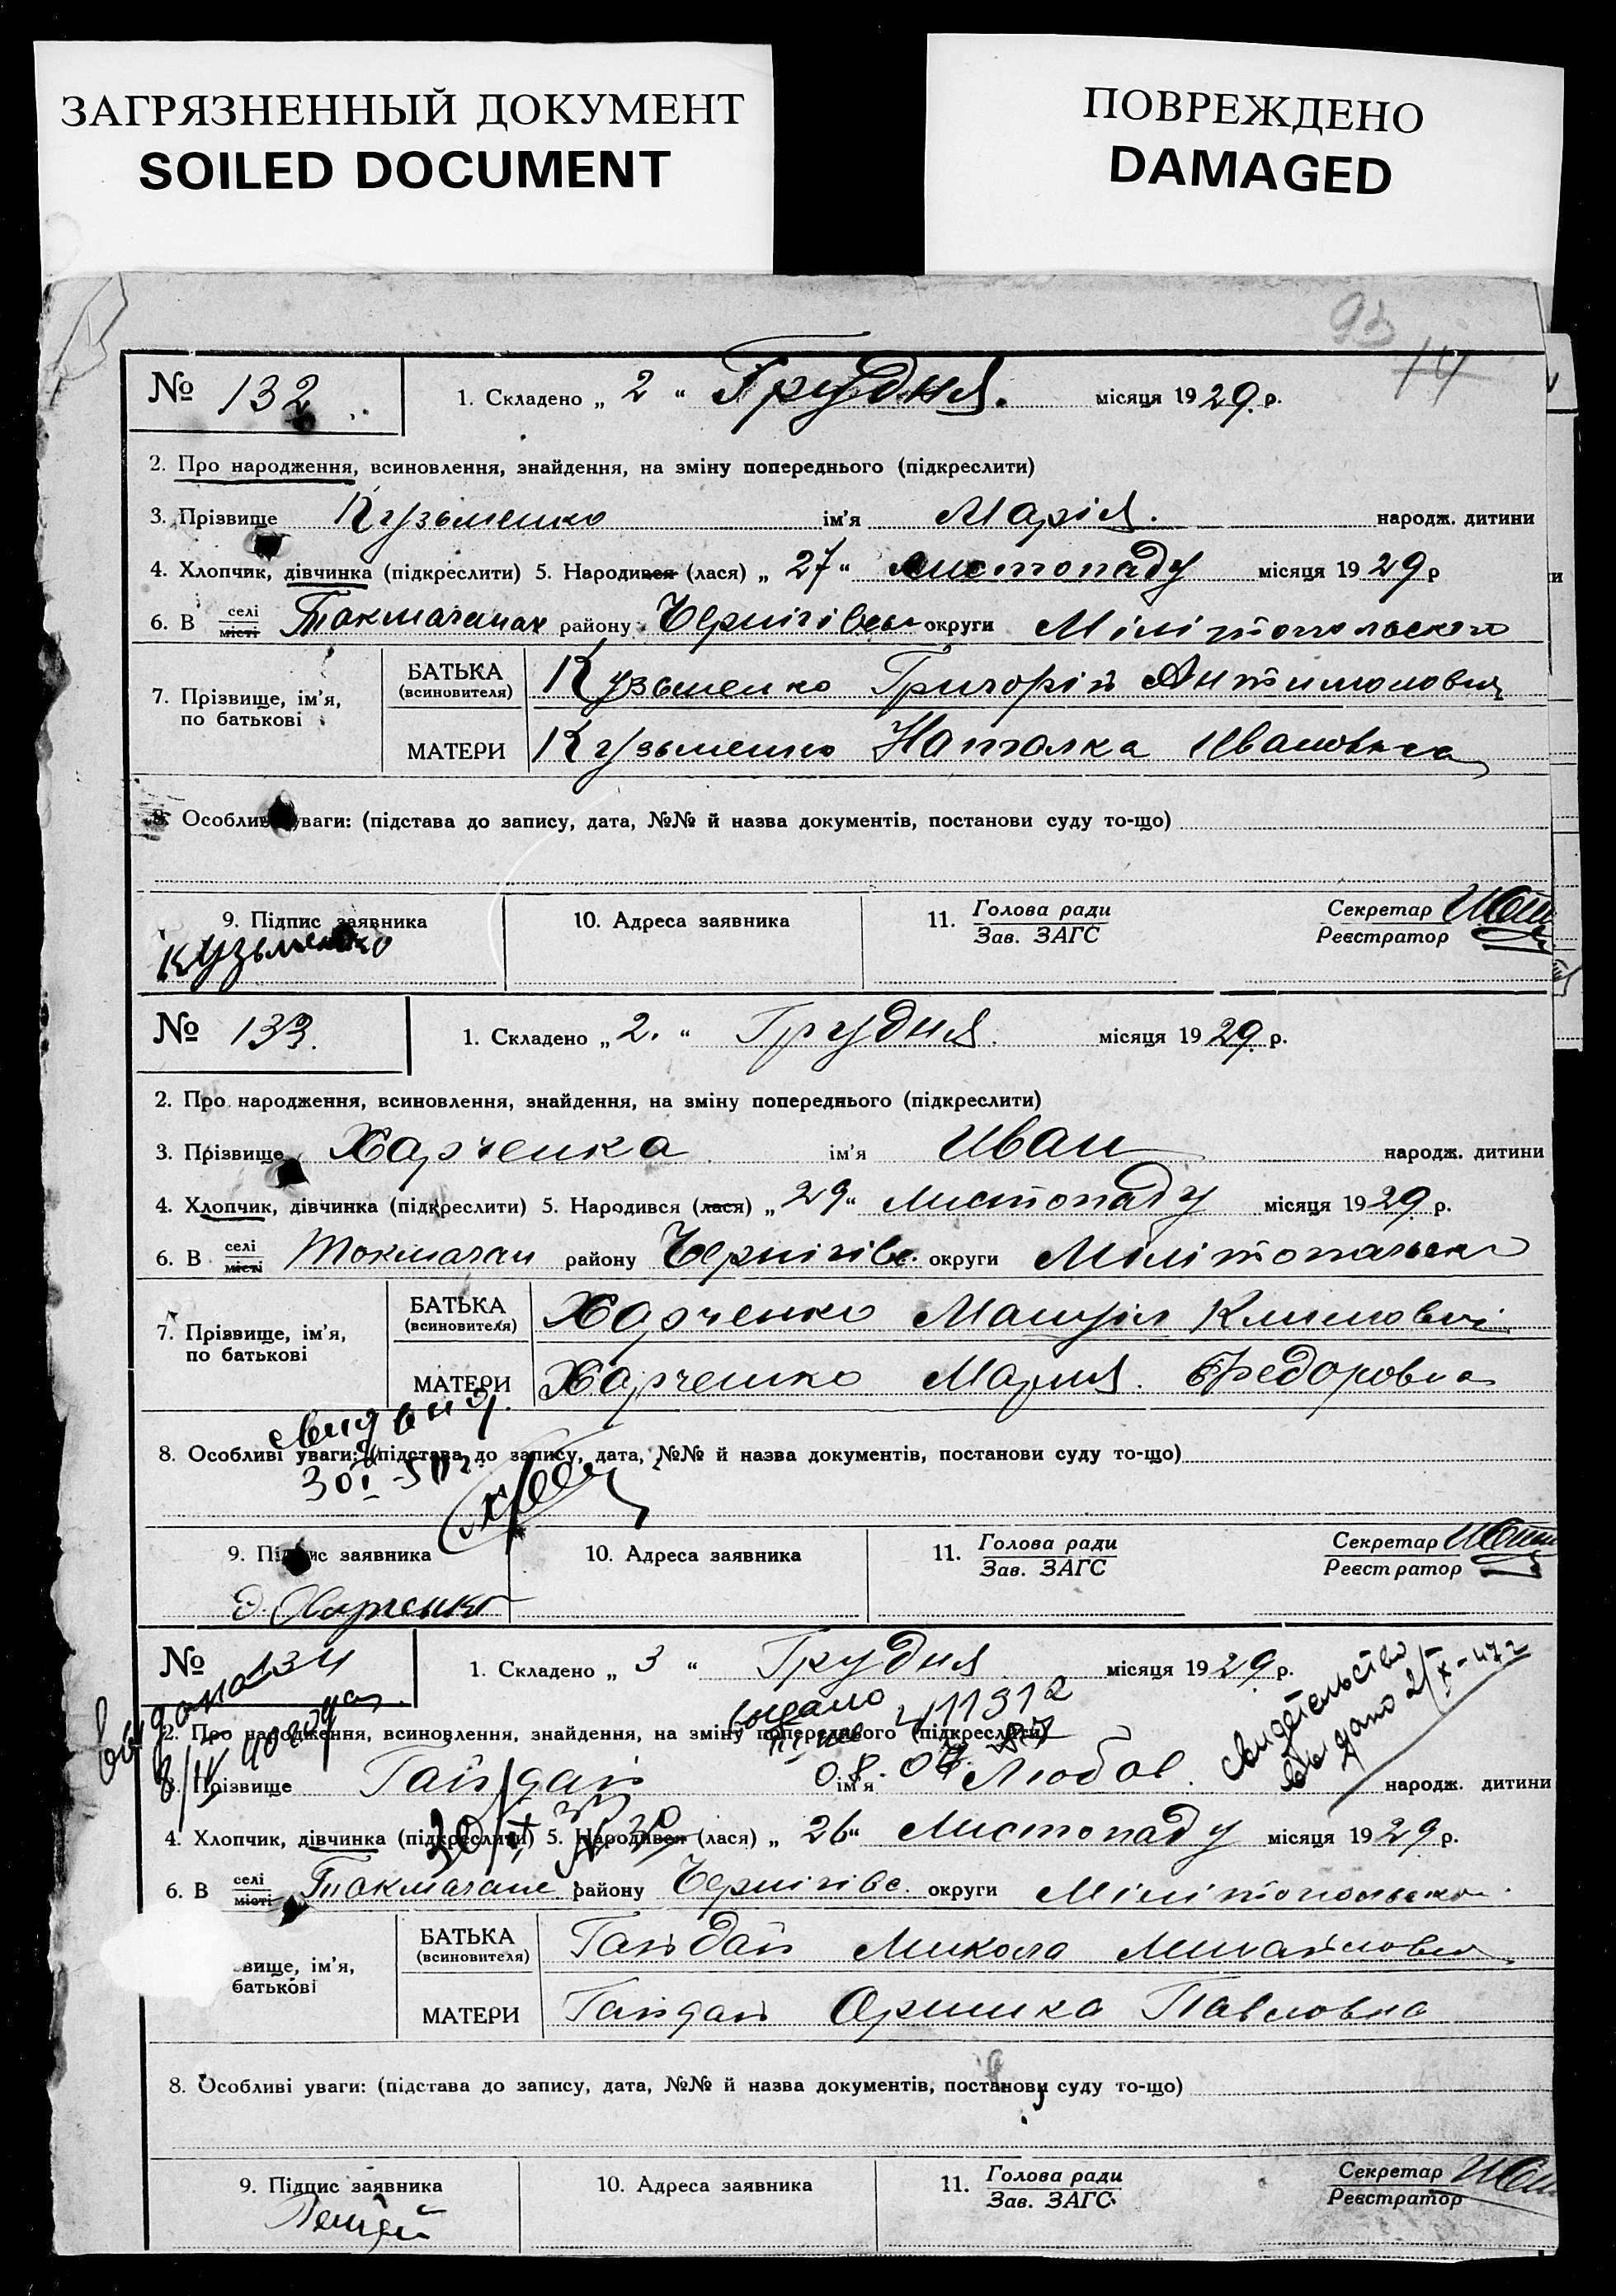 ЗАГРЯЗНЕННЫЙ ДОКУМЕНТ
SOILED DOCUMENT
ПОВРЕЖДЕНО
DAMAGED
№ 132
1. Складено „ 2 “ Грудня. місяця 1929 р.
2. Про народження, всиновлення, знайдення, на зміну попереднього (підкреслити)
3. Прізвище Кузьменко ім'я Марія. народж. дитини
4. Хлопчик, дівчинка (підкреслити) 5. Народився (лася) „ 27 “ листопаду місяця 1929 р
6. В селі місті Токмачанах району Чернігівськ округи Мілітопольского
7. Прізвище, ім'я, по батькові
БАТЬКА (всиновителя) Кузьменко Григорій
МАТЕРИ Кузьменко Наталка Ивановна
8. Особливі уваги: (підстава до запису, дата, №№ й назва документів, постанови суду то-що)
9. Підпис заявника 10. Адреса заявника 11. Голова ради Зав. ЗАГС Секретар Реєстратор
Кузьменко
№ 133.
1. Складено „ 2. “ Грудня. місяця 1929 р.
2. Про народження, всиновлення, знайдення, на зміну попереднього (підкреслити)
3. Прізвище Харченка ім'я Иван народж. дитини
4. Хлопчик, дівчинка (підкреслити) 5. Народився (лася) „ 29 “ листопаду місяця 1929 р.
6. В селі місті Токмачан району Чернігівс. округи Мілітопольск
7. Прізвище, ім'я, по батькові
БАТЬКА (всиновителя) Харченко Климович
МАТЕРИ Харченко Мария. Федоровна
8. Особливі уваги: (підстава до запису, дата, №№ й назва документів, постанови суду то-що)
9. Підпис заявника 10. Адреса заявника 11. Голова ради Зав. ЗАГС Секретар Реєстратор
Харченко
№ 134
1. Складено „ 3 “ Грудня місяця 1929 р.
выдано
411312
свидетельство
выдано 2/X-47 г
2. Про народження, всиновлення, знайдення, на зміну попереднього (підкреслити)
3. Прізвище Гайдай ім'я Любов. народж. дитини
4. Хлопчик, дівчинка (підкреслити) 5. Народився (лася) „ 26 “ Листопаду місяця 1929 р.
6. В селі місті Токмачане району Чернігівс. округи Мілітопольско
вище, ім'я, батькові
БАТЬКА (всиновителя) Гайдай Микола Михайлович
МАТЕРИ Гайдай Оришка Павловна
8. Особливі уваги: (підстава до запису, дата, №№ й назва документів, постанови суду то-що)
9. Підпис заявника 10. Адреса заявника 11. Голова ради Зав. ЗАГС Секретар Реєстратор